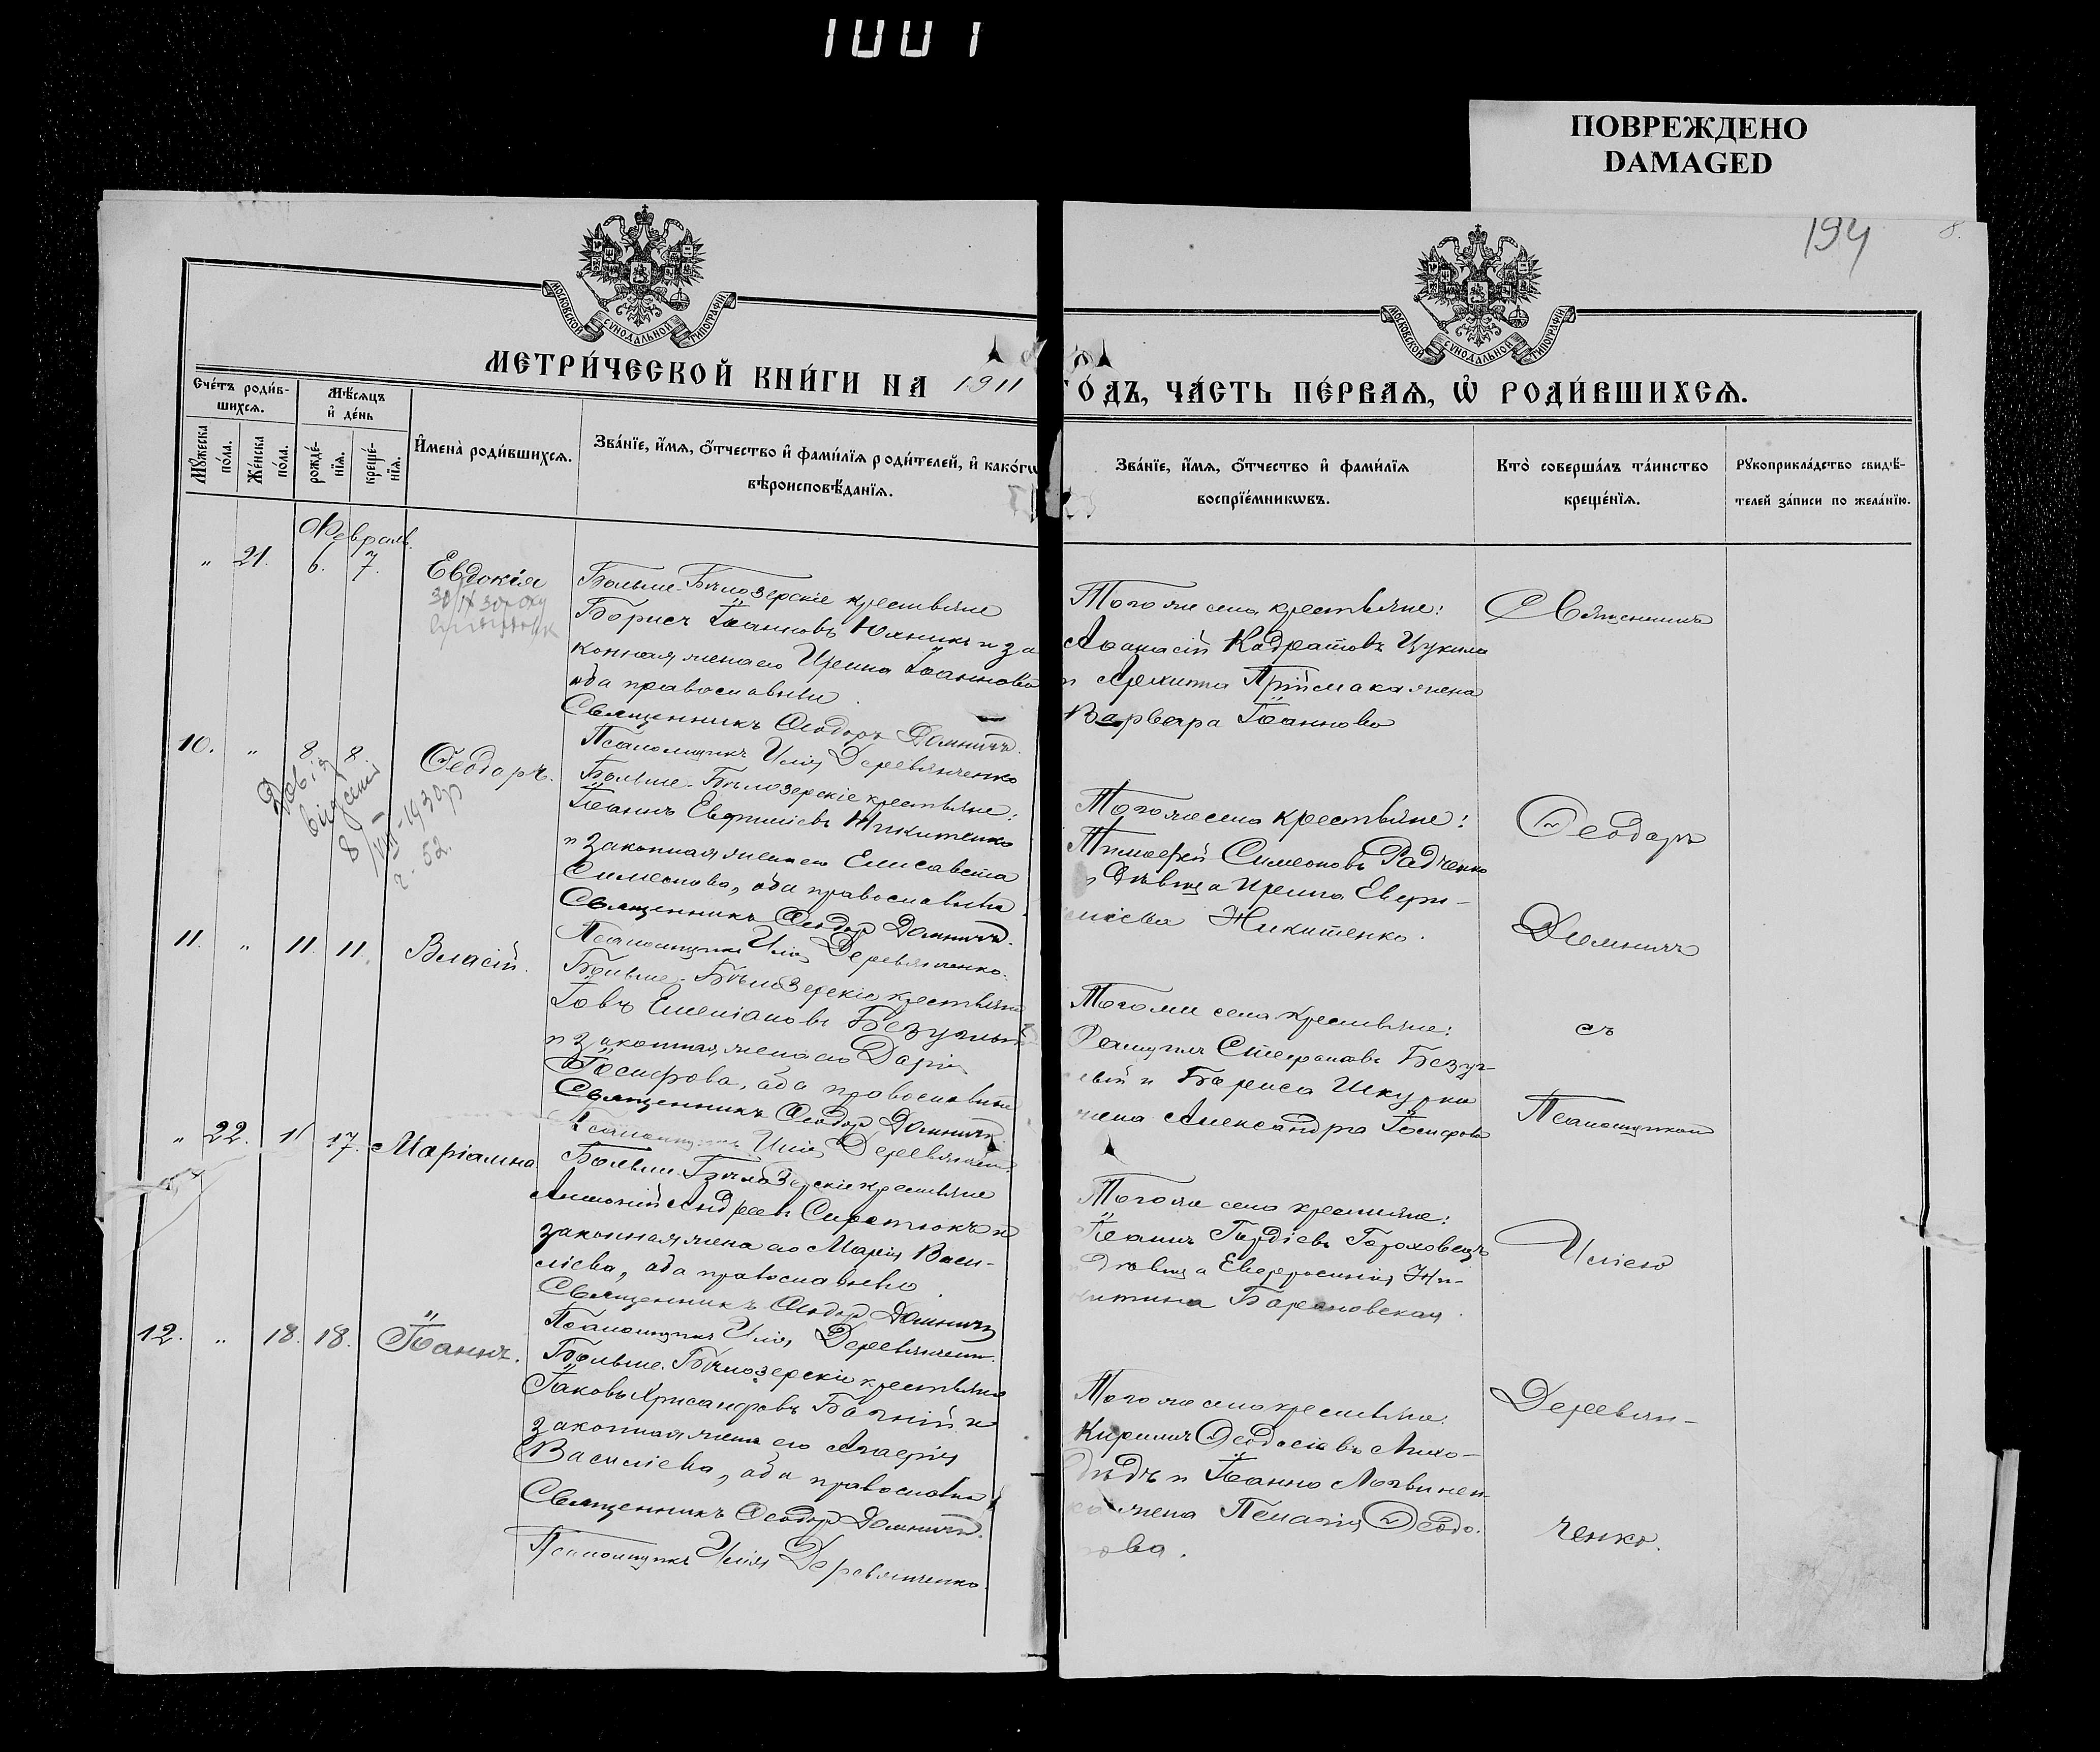 1001
ПОВРЕЖДЕНО
DAMAGED
194
8.
МОСКОВСКОЙ СУНОДАЛЬНОЙ ТИПОГРАФІИ
МОСКОВСКОЙ СУНОДАЛЬНОЙ ТИПОГРАФІИ
МЕТРИ́ЧЕСКОЙ КНИ́ГИ НА 1911
ГО́ДЪ, ЧА́СТЬ ПЕ́РВАѦ, Ѡ҆ РОДИ́ВШИХСѦ.
Сче́тъ роди́в-
шихсѧ.
Мѣ́сѧцъ
и҆ де́нь
Мꙋ́жеска
по́ла.
Же́нска
по́ла.
рожде́-
нїѧ.
креще́-
нїѧ.
И҆мена̀ роди́вшихсѧ.
Зва́нїе, и҆́мѧ, ѻ҆́тчество и҆ фами́лїѧ роди́телей, и҆ како́гѡ
вѣроисповѣ́данїѧ.
Зва́нїе, и҆́мѧ, ѻ҆́тчество и҆ фами́лїѧ
воспрїе́мникѡвъ.
Кто̀ соверша́лъ та́инство
креще́нїѧ.
Рꙋкоприкла́дство свидѣ́-
телей за́писи по жела́нїю.
Февраль.
" 21. 6. 7. Евдокія
30/IX 30 року
Больше-Бѣлозерскіе крестьяне
Борисъ Іоанновъ Юхникъ и за
конная жена его Ирина Іоаннова
оба православные
Священникъ Ѳеодоръ Домничъ.
Псаломщикъ Илія Деревянченко
Того же села крестьяне:
Аѳанасій Кодратовъ Цукила
и Архипа Приймака жена
Варвара Іоаннова
10. " 8. 8. Ѳеодоръ.
Довід.
видений
8/VIII-1930 р
ч. 52.
Больше-Бѣлозерскіе крестьяне:
Іоаннъ Евфиміевъ Никитенко
и законная жена его Елисавета
Симеонова, оба православные.
Священникъ Ѳеодоръ Домничъ.
Псаломщикъ Илія Деревянченко.
Того же села крестьяне:
Тимофей Симеоновъ Радченко
и дѣвица Ирина Евфи-
міева Никитенко.
11. " 11. 11. Власій.
Больше-Бѣлозерскіе крестьяне
Іовъ Емеліановъ Безуглый
и законная жена его Дарія
Іосифова, оба православные
Священникъ Ѳеодоръ Домничъ.
Псаломщикъ Илія Деревянчен.
Того же села крестьяне:
Стефановъ Безуг-
лый и Бориса Шкурка
жена Александра Іосифова
" 22. 11 17. Маріамна.
Больше-Бѣлозерскіе крестьяне
Антоній Андреевъ Сиротюкъ и
законная жена его Марія Васи-
ліева, оба православные.
Священникъ Ѳеодоръ Домничъ
Псаломщикъ Илія Деревянчен.
Того же села крестьяне:
Іоаннъ Гордіевъ Гороховецъ
дѣвица Евфросинія Ни-
китина Барановская.
12. " 18. 18. Іоаннъ.
Больше-Бѣлозерскіе крестьяне
Іаковъ Хрисанфовъ Бачній и
законная жена его Агафія
Василіева, оба православные
Священникъ Ѳеодоръ Домничъ.
Псаломщикъ Илія Деревянченко.
Того же села крестьяне:
Кириллъ Ѳеодосіевъ Лихо-
дѣдъ и Іоанна Логвинен-
ко жена Пелагія Ѳеодо-
рова.
Священникъ
Ѳеодоръ
Домничъ
съ
Псаломщикомъ
Иліею
Деревян-
ченко.